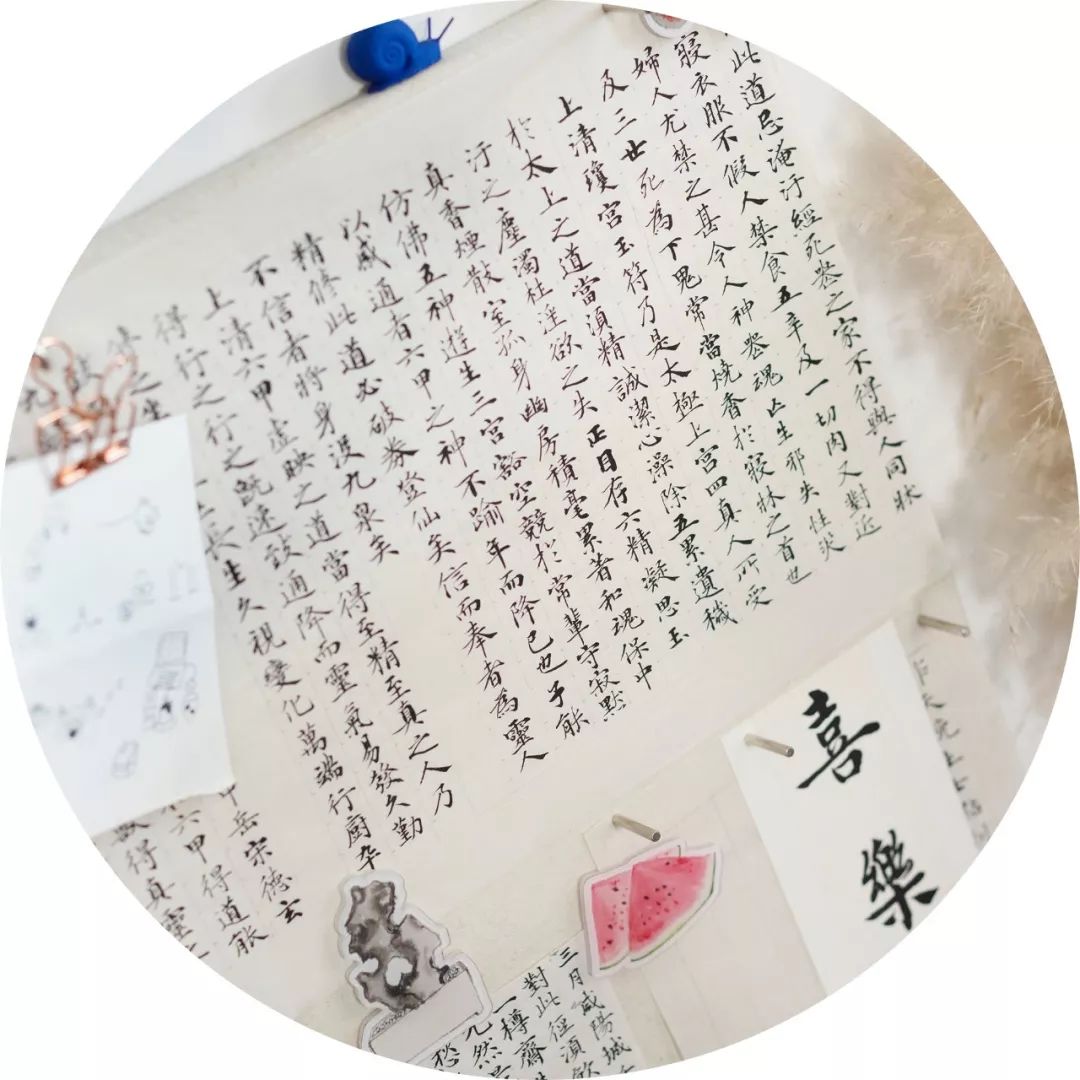 此道忌淹汙經死喪之家不得與人同牀
寢衣服不假人禁食五辛及一切肉又對近
婦人尤禁之甚令人神喪魂亡生邪失性災
及三世死為下鬼常當燒香於寢牀之首也
上清瓊宮玉符乃是太極上宮四真人所受
於太上之道當須精誠潔心澡除五累遺穢
汙之塵濁杜淫欲之失正目存六精凝思玉
真香煙散室孤身幽房積毫累著和魂保中
仿佛五神遊生三宮豁空競於常輩守寂默
以感通者六甲之神不踰年而降已也子能
精修此道必破券登仙矣信而奉者為靈人
不信者將身沒九泉矣
上清六甲虛映之道當得至精至真之人乃
得行之行之既速致通降而靈氣易發久勤
修之
長生久視變化萬端行廚卒
甲岳宋德玄
六甲得道能
得真靈
喜
樂
三月咸陽城
對此徑須飲
一樽齊
兀然
愁